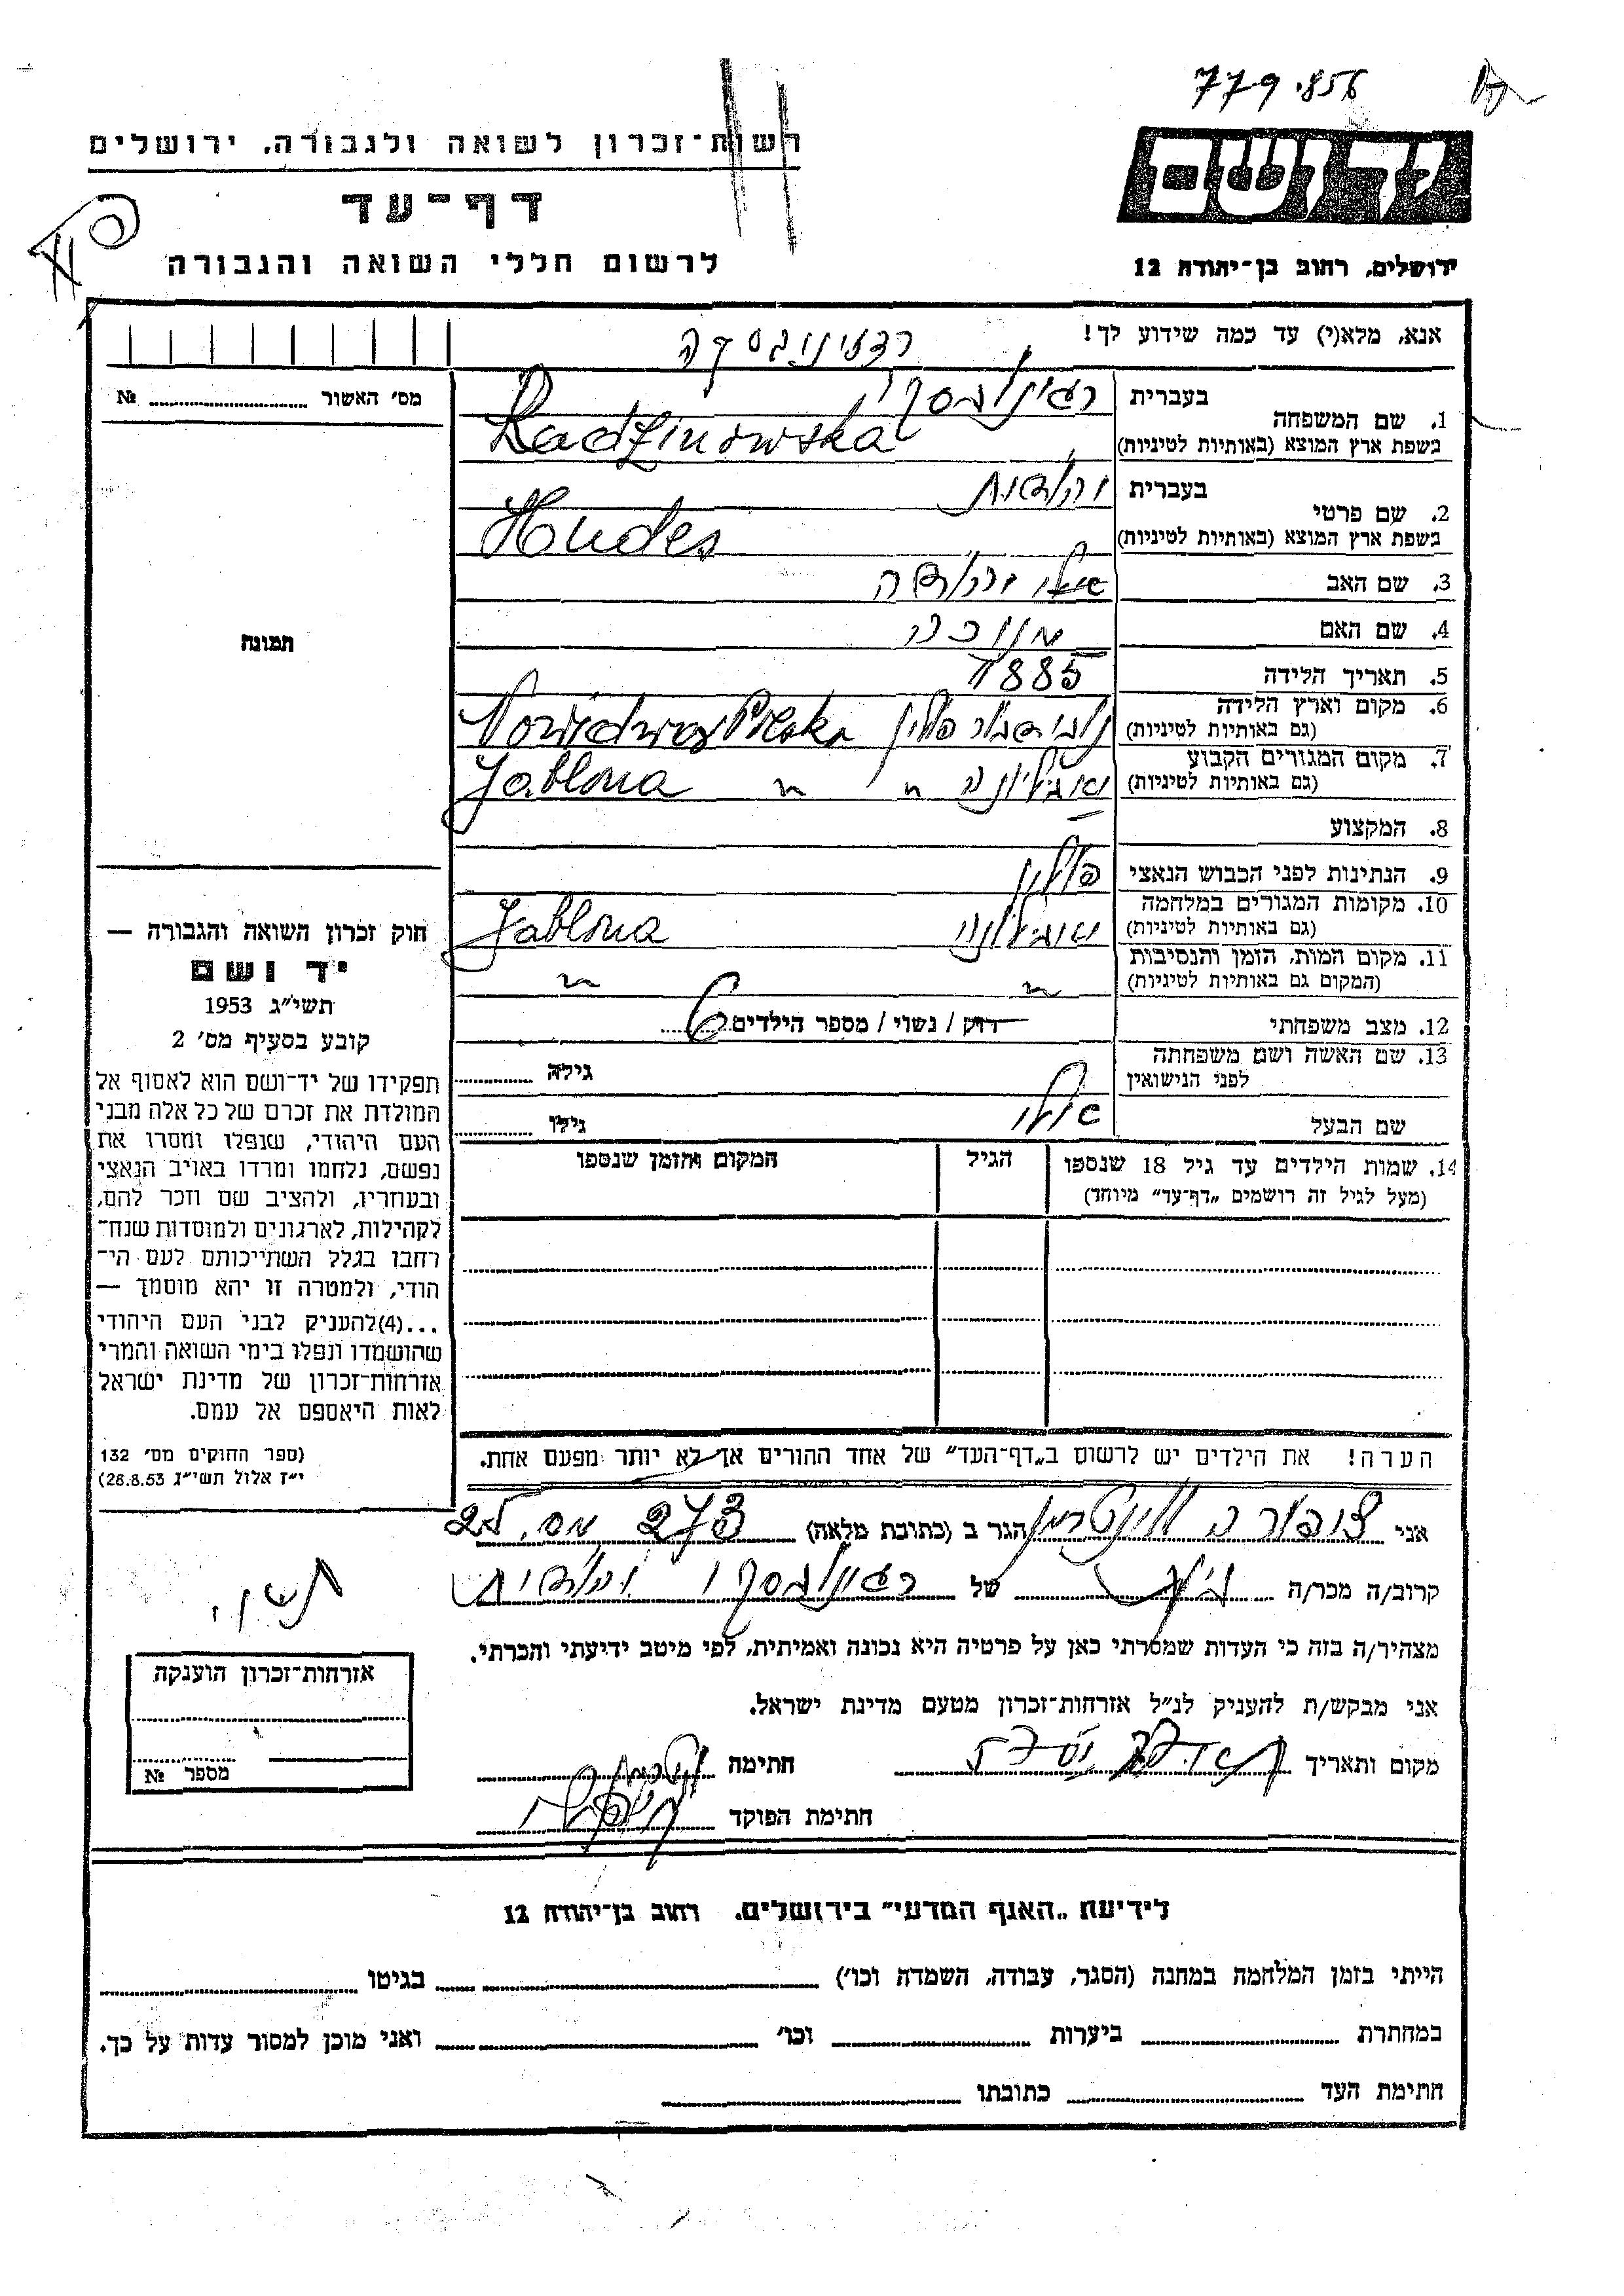 779.856
רשות-זכרון לשואה ולגבורה. ירושלים
יד ושם
דף-עד
לרשום חללי השואה והגבורה
ירושלים, רחוב בן-יהודה 12
אנא, מלא(י) עד כמה שידוע לך!
רדזינובסקה
מס' האשור № ........
1. שם המשפחה בעברית
בשפת ארץ המוצא (באותיות לטיניות) Radzinowska
2. שם פרטי בעברית
בשפת ארץ המוצא (באותיות לטיניות) Hudes
3. שם האב
4. שם האם
5. תאריך הלידה 1885
6. מקום וארץ הלידה (גם באותיות לטיניות) פולין
7. מקום המגורים הקבוע (גם באותיות לטיניות) Jablona
8. המקצוע
9. הנתינות לפני הכבוש הנאצי פולין
10. מקומות המגורים במלחמה (גם באותיות לטיניות) Jablona
11. מקום המות, הזמן והנסיבות (המקום גם באותיות לטיניות) " "
12. מצב משפחתי רווק / נשוי / מספר הילדים 6
13. שם האשה ושם משפחתה לפני הנישואין גילה
שם הבעל גילו
14. שמות הילדים עד גיל 18 שנספו הגיל המקום והזמן שנספו
(מעל לגיל זה רושמים "דף-עד" מיוחד)
תמונה
חוק זכרון השואה והגבורה —
יד ושם
תשי"ג 1953
קובע בסעיף מס' 2
תפקידו של יד-ושם הוא לאסוף אל
המולדת את זכרם של כל אלה מבני
העם היהודי, שנפלו ומסרו את
נפשם, נלחמו ומרדו באויב הנאצי
ובעוזריו, ולהציב שם וזכר להם,
לקהילות, לארגונים ולמוסדות שנח-
רבו בגלל השתייכותם לעם הי-
הודי, ולמטרה זו יהא מוסמך —
...(4)להעניק לבני העם היהודי
שהושמדו ונפלו בימי השואה והמרי
אזרחות-זכרון של מדינת ישראל
לאות היאספם אל עמם.
(ספר החוקים מס' 132
י"ז אלול תשי"ג 28.8.53)
הערה! את הילדים יש לרשום ב"דף-העד" של אחד ההורים אך לא יותר מפעם אחת.
אני צפורה הגר ב (כתובת מלאה) 273
קרוב/ה מכר/ה של
מצהיר/ה בזה כי העדות שמסרתי כאן על פרטיה היא נכונה ואמיתית, לפי מיטב ידיעתי והכרתי.
אני מבקש/ת להעניק לנ"ל אזרחות-זכרון מטעם מדינת ישראל.
מקום ותאריך חתימה
חתימת הפוקד
אזרחות-זכרון הוענקה
מספר №
לידיעת "האגף המדעי" בירושלים. רחוב בן-יהודה 12
הייתי בזמן המלחמה במחנה (הסגר, עבודה, השמדה וכו') בגיטו
במחתרת ביערות וכו' ואני מוכן למסור עדות על כך.
חתימת העד כתובתו